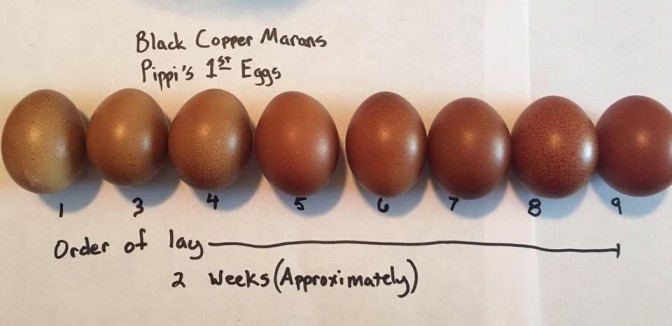 Black Copper Marans
Pippi's 1st Eggs
1 3 4 5 6 7 8 9
Order of lay
2 Weeks (Approximately)